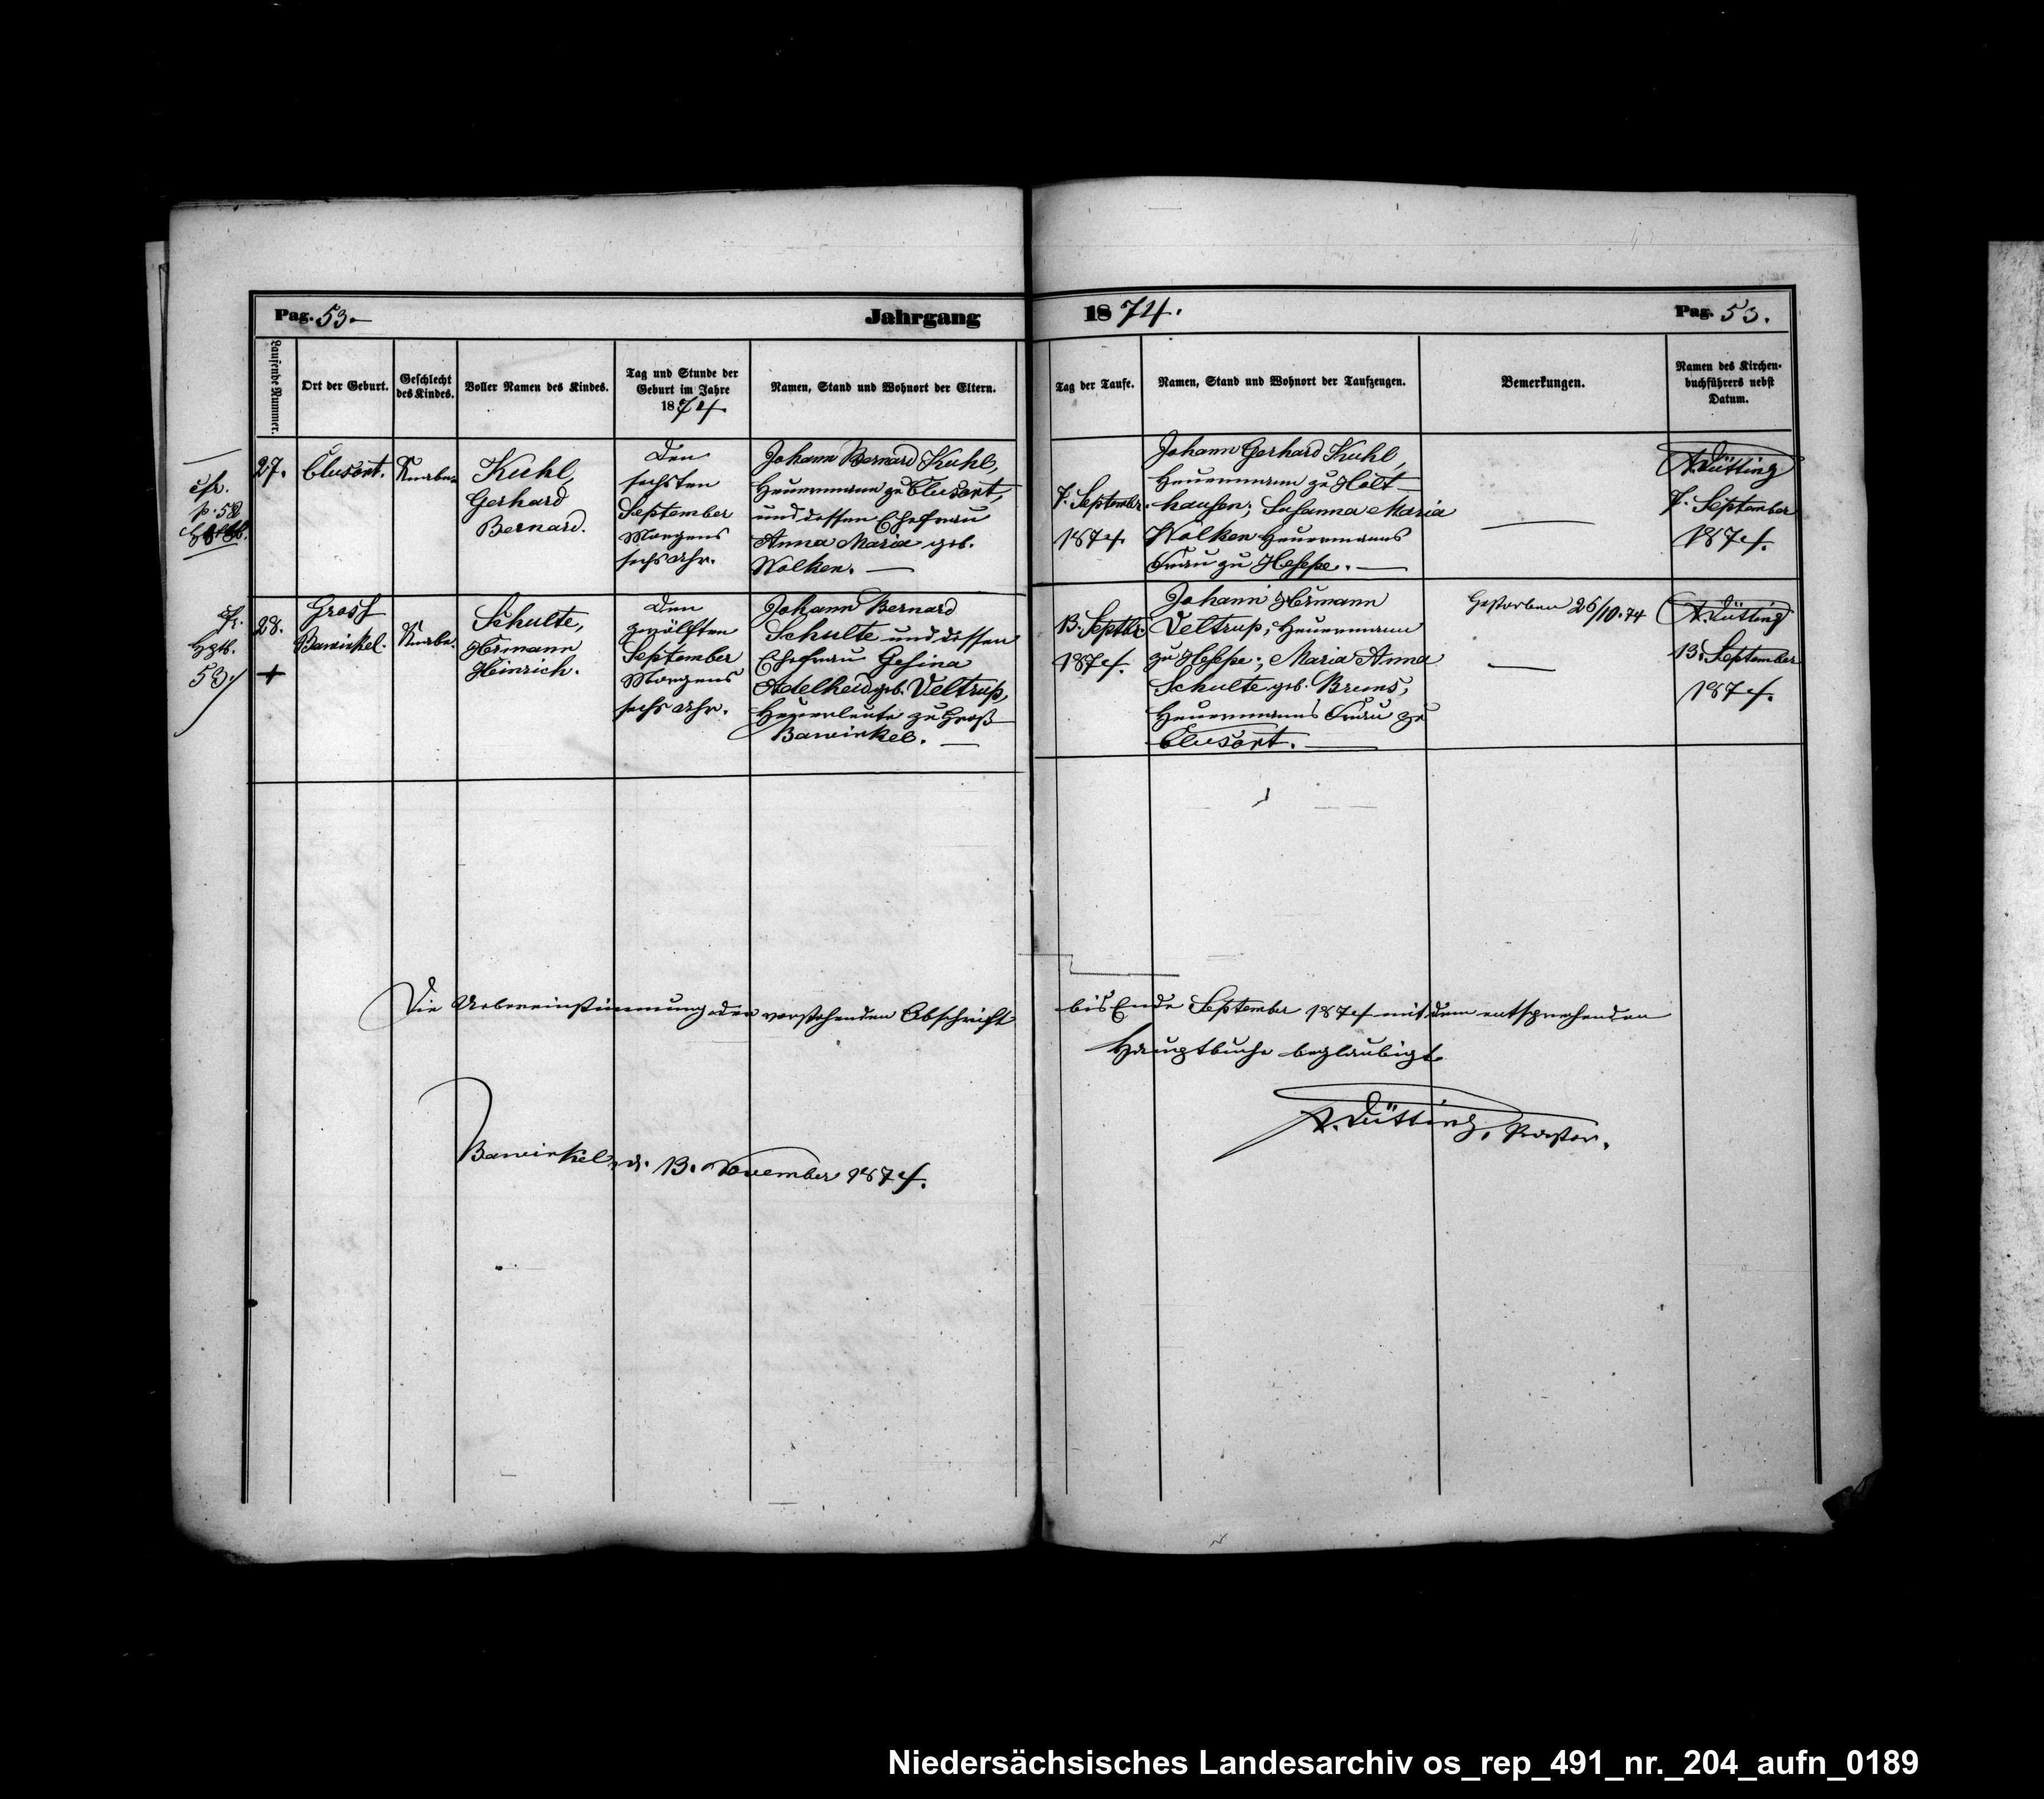 Pag. 53.
Jahrgang
1874.
Pag. 53.
Laufende Nummer.
Ort der Geburt.
Geschlecht
des Kindes.
Voller Namen des Kindes.
Tag und Stunde der
Geburt im Jahre
1874.
Namen, Stand und Wohnort der Eltern.
Tag der Taufe.
Namen, Stand und Wohnort der Taufzeugen.
Bemerkungen.
Namen des Kirchen-
buchführers nebst
Datum.
cfr.
p. 52
27.
Clusort.
Knabe.
Kuhl,
Gerhard
Bernard.
Den
sechsten
September
Morgens
sechs Uhr.
Johann Bernard Kuhl,
Heuermann zu Clusort,
und dessen Ehefrau
Anna Maria geb.
Wolken.
7. September.
1874.
Johann Gerhard Kuhl,
Heuermann zu Holt-
hausen; Susanna Maria
Wolken Heuermanns
Frau zu Hesepe.
A. Dütting
7. September
1874.
cfr.
Hptb.
53.
28.
+
Gross
Bawinkel.
Knabe.
Schulte,
Hermann
Heinrich.
Den
zwölften
September
Morgens
sechs Uhr.
Johann Bernard
Schulte und dessen
Ehefrau Gesina
Adelheid geb. Veltrup,
Heuerleute zu Groß
Bawinkel.
13. Septbr.
1874.
Johann Hermann
Veltrup, Heuermann
zu Hesepe; Maria Anna
Schulte geb. Brems,
Heuermanns Frau zu
Clusort.
Gestorben 26/10.74
A. Dütting
13. September
1874.
Die Uebereinstimmung der vorstehenden Abschrift bis Ende September 1874 mit dem entsprechenden
Hauptbuche beglaubigt
Bawinkel, d. 13. November 1874.
A. Dütting, Pastor.
Niedersächsisches Landesarchiv os_rep_491_nr._204_aufn_0189